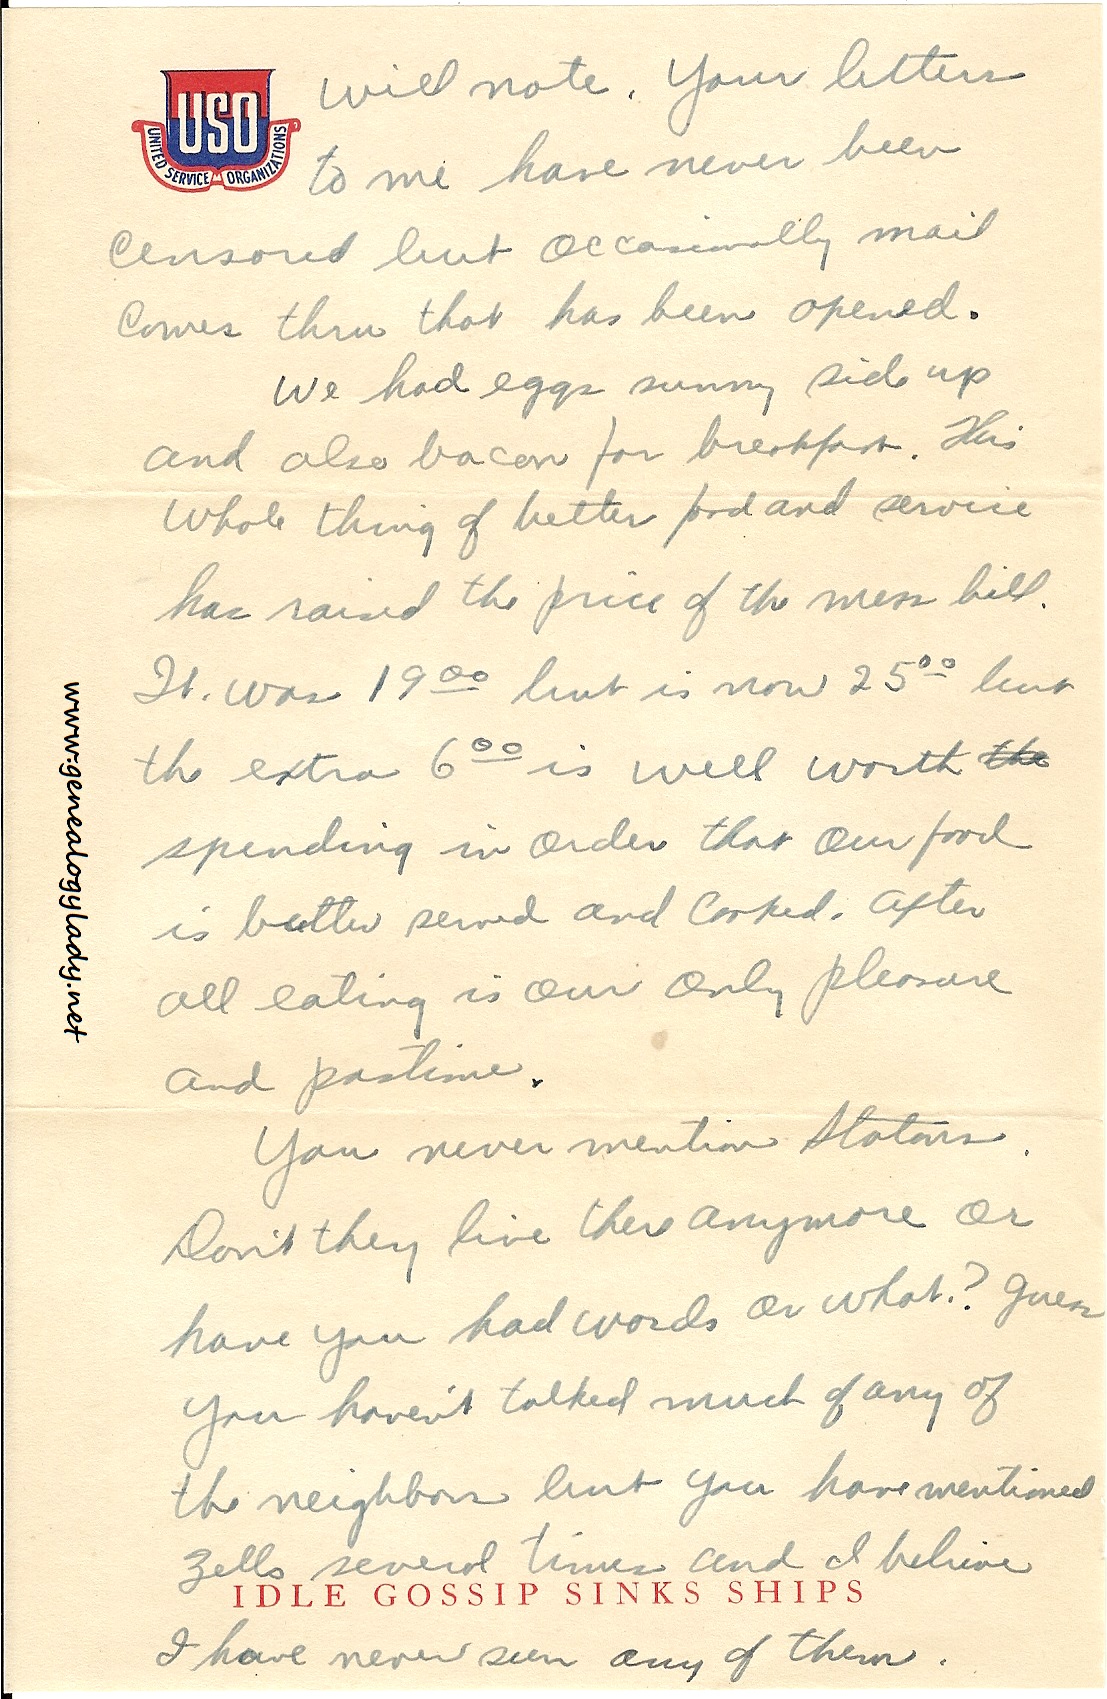 USO
UNITED SERVICE ORGANIZATIONS
will note. Your letters
to me have never been
censored but occasionally mail
comes thru that has been opened.
We had eggs sunny side up
and also bacon for breakfast. This
whole thing of better food and service
has raised the price of the mess bill.
It. was 19 00 but is now 25 00 but
the extra 6 00 is well worth the
spending in order that our food
is better served and cooked. After
all eating is our only pleasure
and pastime.
You never mention Statons.
Don't they live there anymore or
have you had words or what? Guess
you haven't talked much of any of
the neighbors but you have mentioned
Zells several times and I believe
IDLE GOSSIP SINKS SHIPS
I have never seen any of them.
www.genealogylady.net